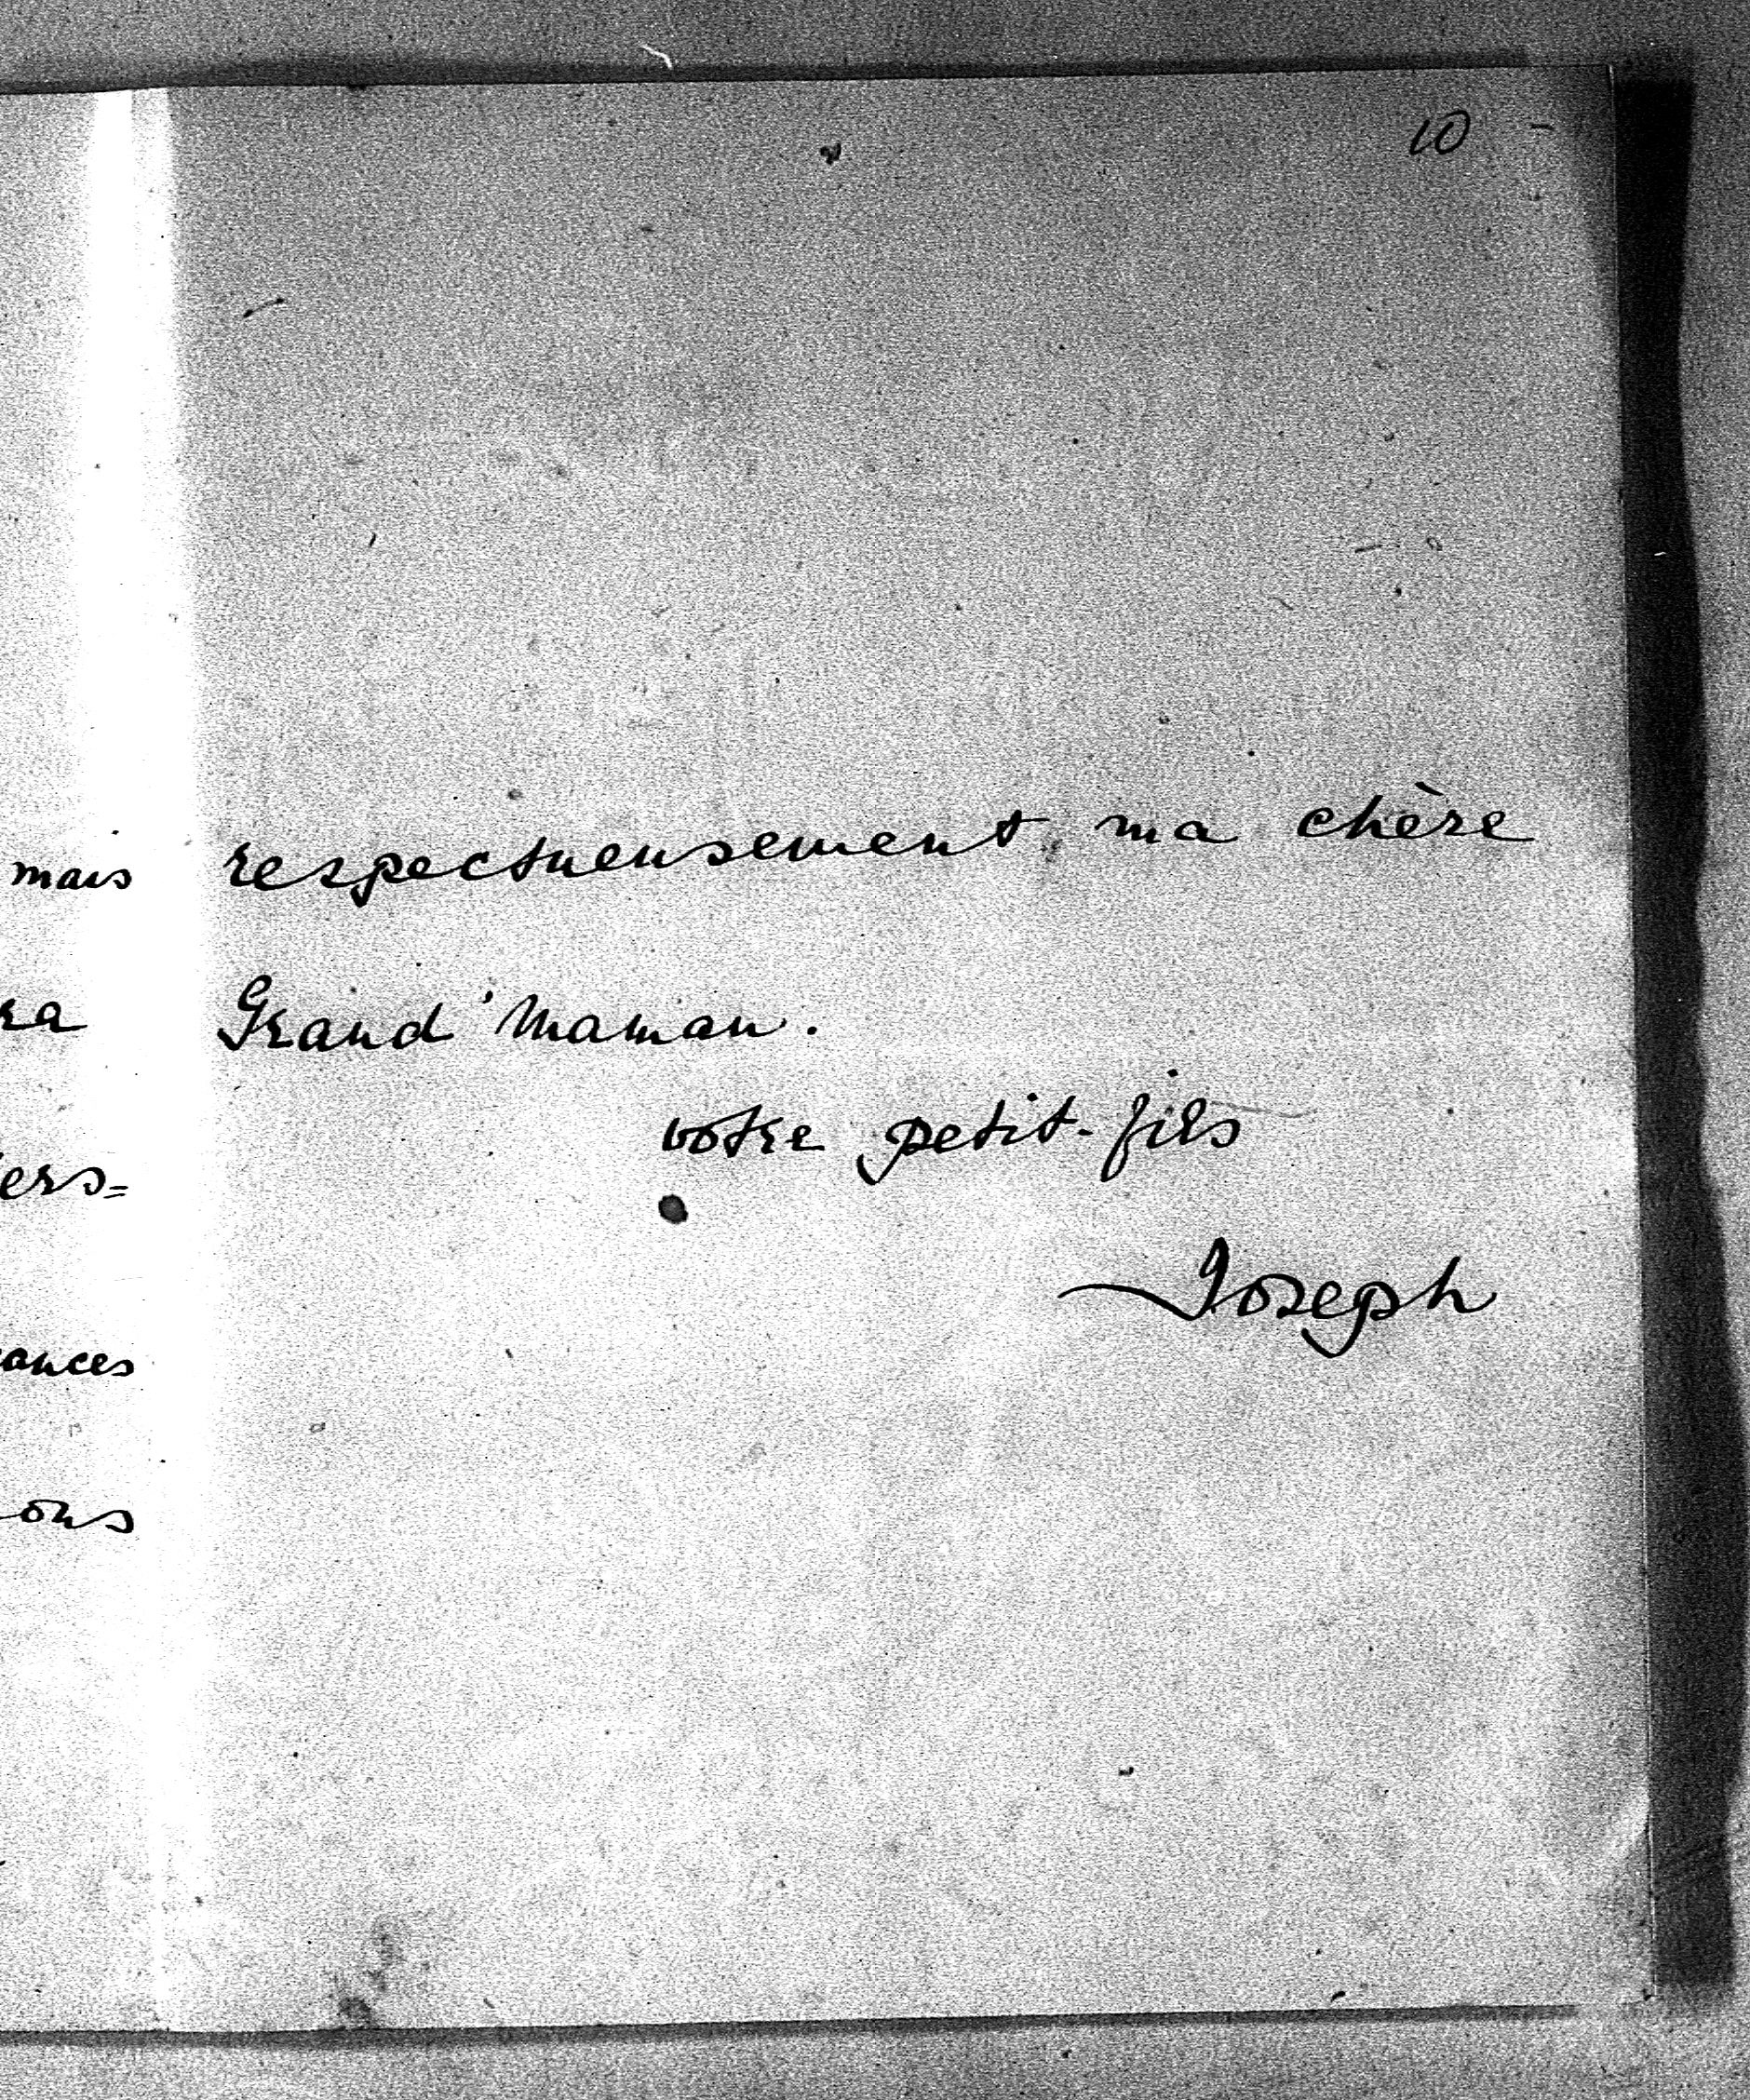 10
mais
ra
ers=
ances
ons
respectueusement, ma chère
Grand'Maman.
votre petit-fils
Joseph